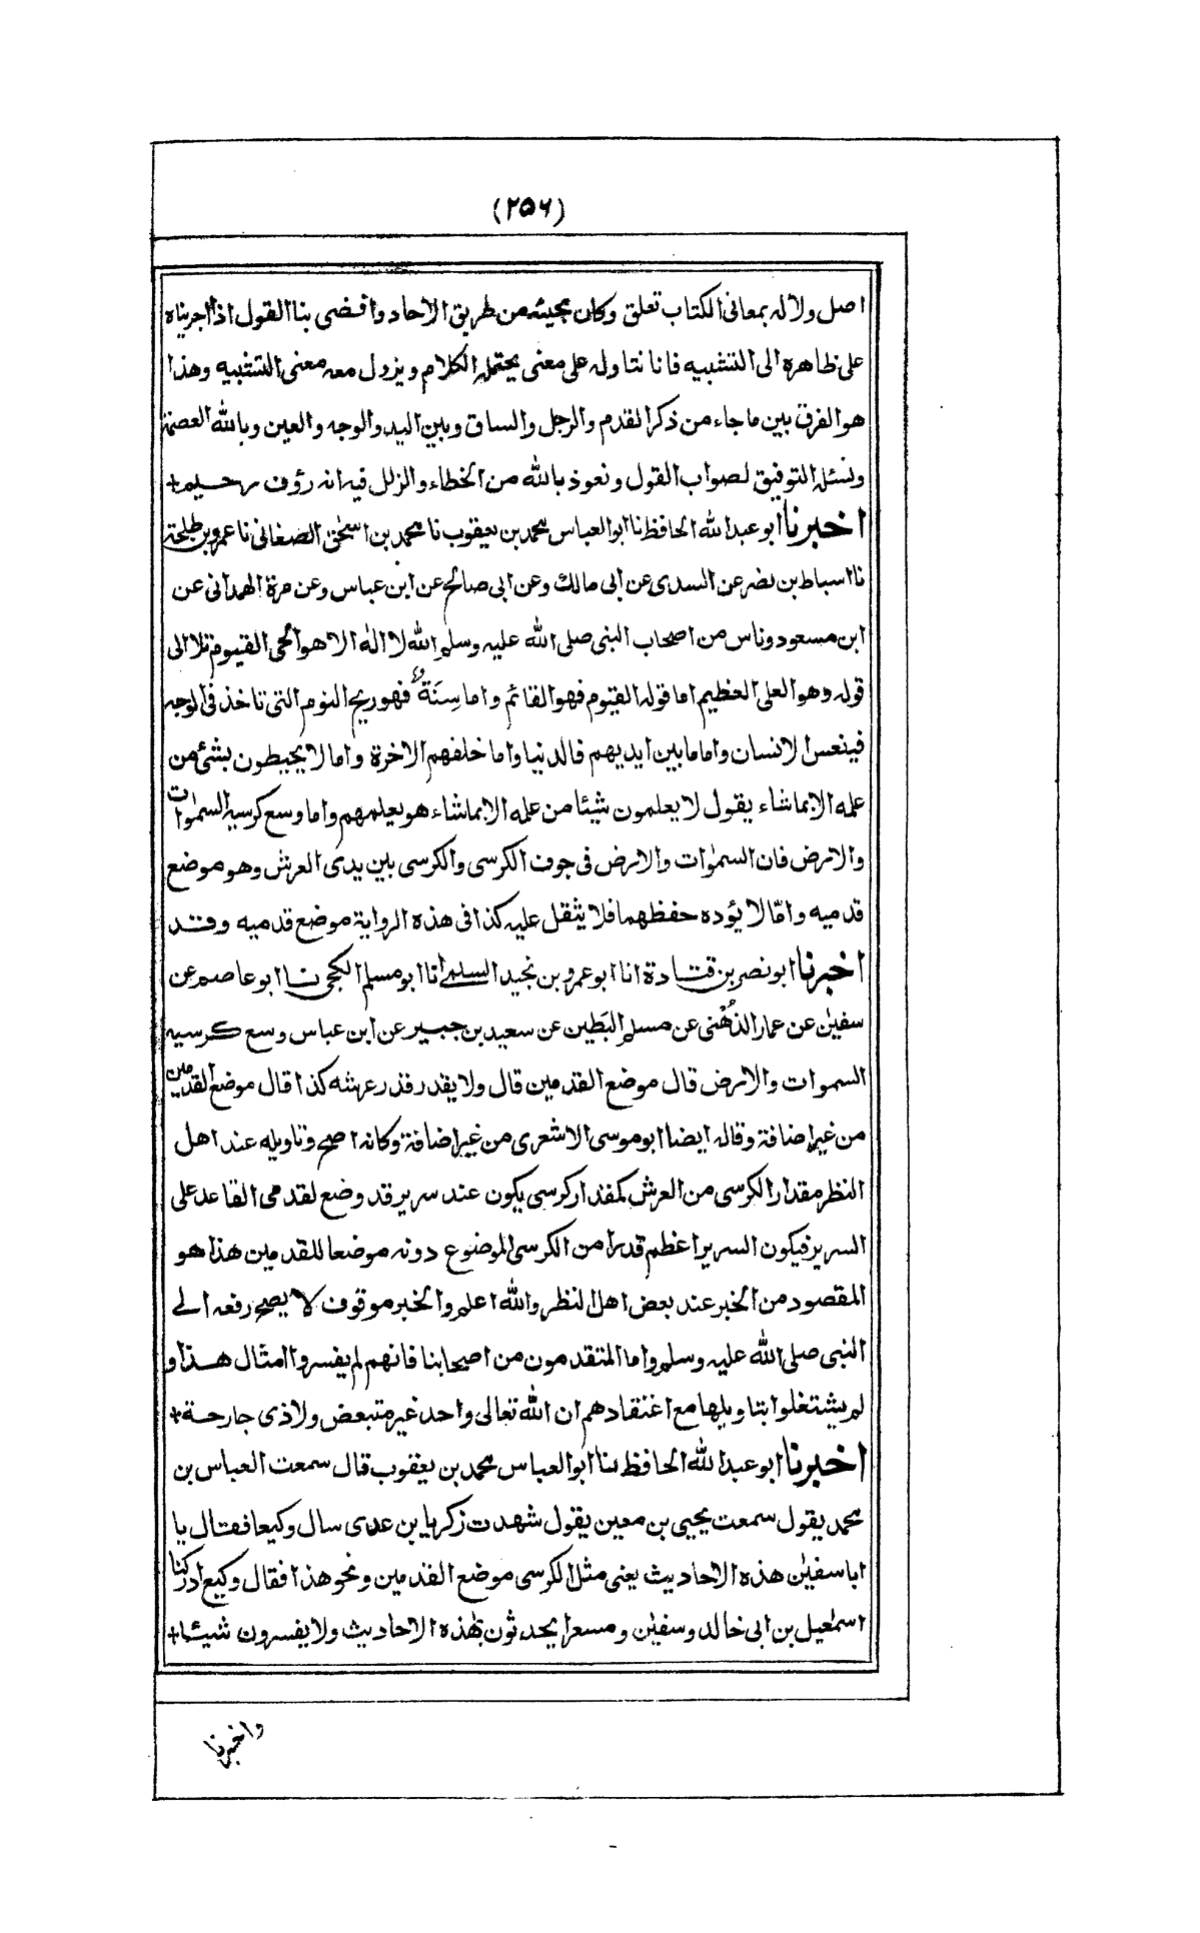 (٢٥٦)
اصل ولا له بمعانى الكتاب تعلق وكان مجيئه من طريق الاحاد وافضى بنا القول اذا اجريناه
على ظاهره الى التشبيه فانا نتاوله على معنى يحتمله الكلام ويزول معه معنى التشبيه وهذا
هو الفرق بين ما جاء من ذكر القدم والرجل والساق وبين اليد والوجه والعين وبالله العصمة
ونسئله التوفيق لصواب القول ونعوذ بالله من الخطاء والزلل فيه انه رؤف رحيم+
اخبرنا ابو عبد الله الحافظ نا ابو العباس محمد بن يعقوب نا محمد بن اسحٰق الصغانى نا عمرو بن طلحة
نا اسباط بن نضر عن السدى عن ابى مالك وعن ابى صالح عن ابن عباس وعن مرة الهمدانى عن
ابن مسعود وناس من اصحاب النبى صلى الله عليه وسلم الله لا اله الا هو الحى القيوم تلا الى
قوله وهو العلى العظيم اما قوله القيوم فهو القائم واما سِنَةٌ فهو ريح النوم التى تاخذ فى الوجه
فينعس الانسان واما ما بين ايديهم فالدنيا واما خلفهم الاخرة واما لا يحيطون بشئ من
علمه الا بما شاء يقول لا يعلمون شيئا من علمه الا بما شاء هو يعلمهم واما وسع كرسيه السمٰوات
والارض فان السمٰوات والارض فى جوف الكرسى والكرسى بين يدى العرش وهو موضع
قدميه وامّا لا يؤده حفظهما فلا يثقل عليه كذا فى هذه الرواية موضع قدميه وقد
اخبرنا ابو نصر بن قتادة انا ابو عمرو بن نجيد السلمى انا ابو مسلم الكجى نا ابو عاصم عن
سفيٰن عن عمار الذُهْنى عن مسلم البَطين عن سعيد بن جبير عن ابن عباس وسع كرسيه
السموات والارض قال موضع القدمين قال ولا يقدر قدر عرشه كذا قال موضع القدمين
من غير اضافة وقاله ايضا ابو موسى الاشعرى من غير اضافة وكانه اصح وتاويله عند اهل
النظر مقدار الكرسى من العرش كمقدار كرسى يكون عند سرير قد وضع لقدمى القاعد على
السرير فيكون السرير اعظم قدرا من الكرسى الموضوع دونه موضعا للقدمين هذا هو
المقصود من الخبر عند بعض اهل النظر والله اعلم والخبر موقوف لا يصح رفعه الى
النبى صلى الله عليه وسلم واما المتقدمون من اصحابنا فانهم لم يفسروا امثال هذا و
لم يشتغلوا بتاويلها مع اعتقادهم ان الله تعالى واحد غير متبعض ولا ذى جارحة+
اخبرنا ابو عبد الله الحافظ ثنا ابو العباس محمد بن يعقوب قال سمعت العباس بن
محمد يقول سمعت يحيى بن معين يقول شهدت زكريا بن عدى سال وكيعا فقال يا
ابا سفيٰن هذه الاحاديث يعنى مثل الكرسى موضع القدمين ونحو هذا فقال وكيع ادركنا
اسمٰعيل بن ابى خالد وسفيٰن ومسعرا يحدثون بهذه الاحاديث ولا يفسرون شيئا+
واخبرنا